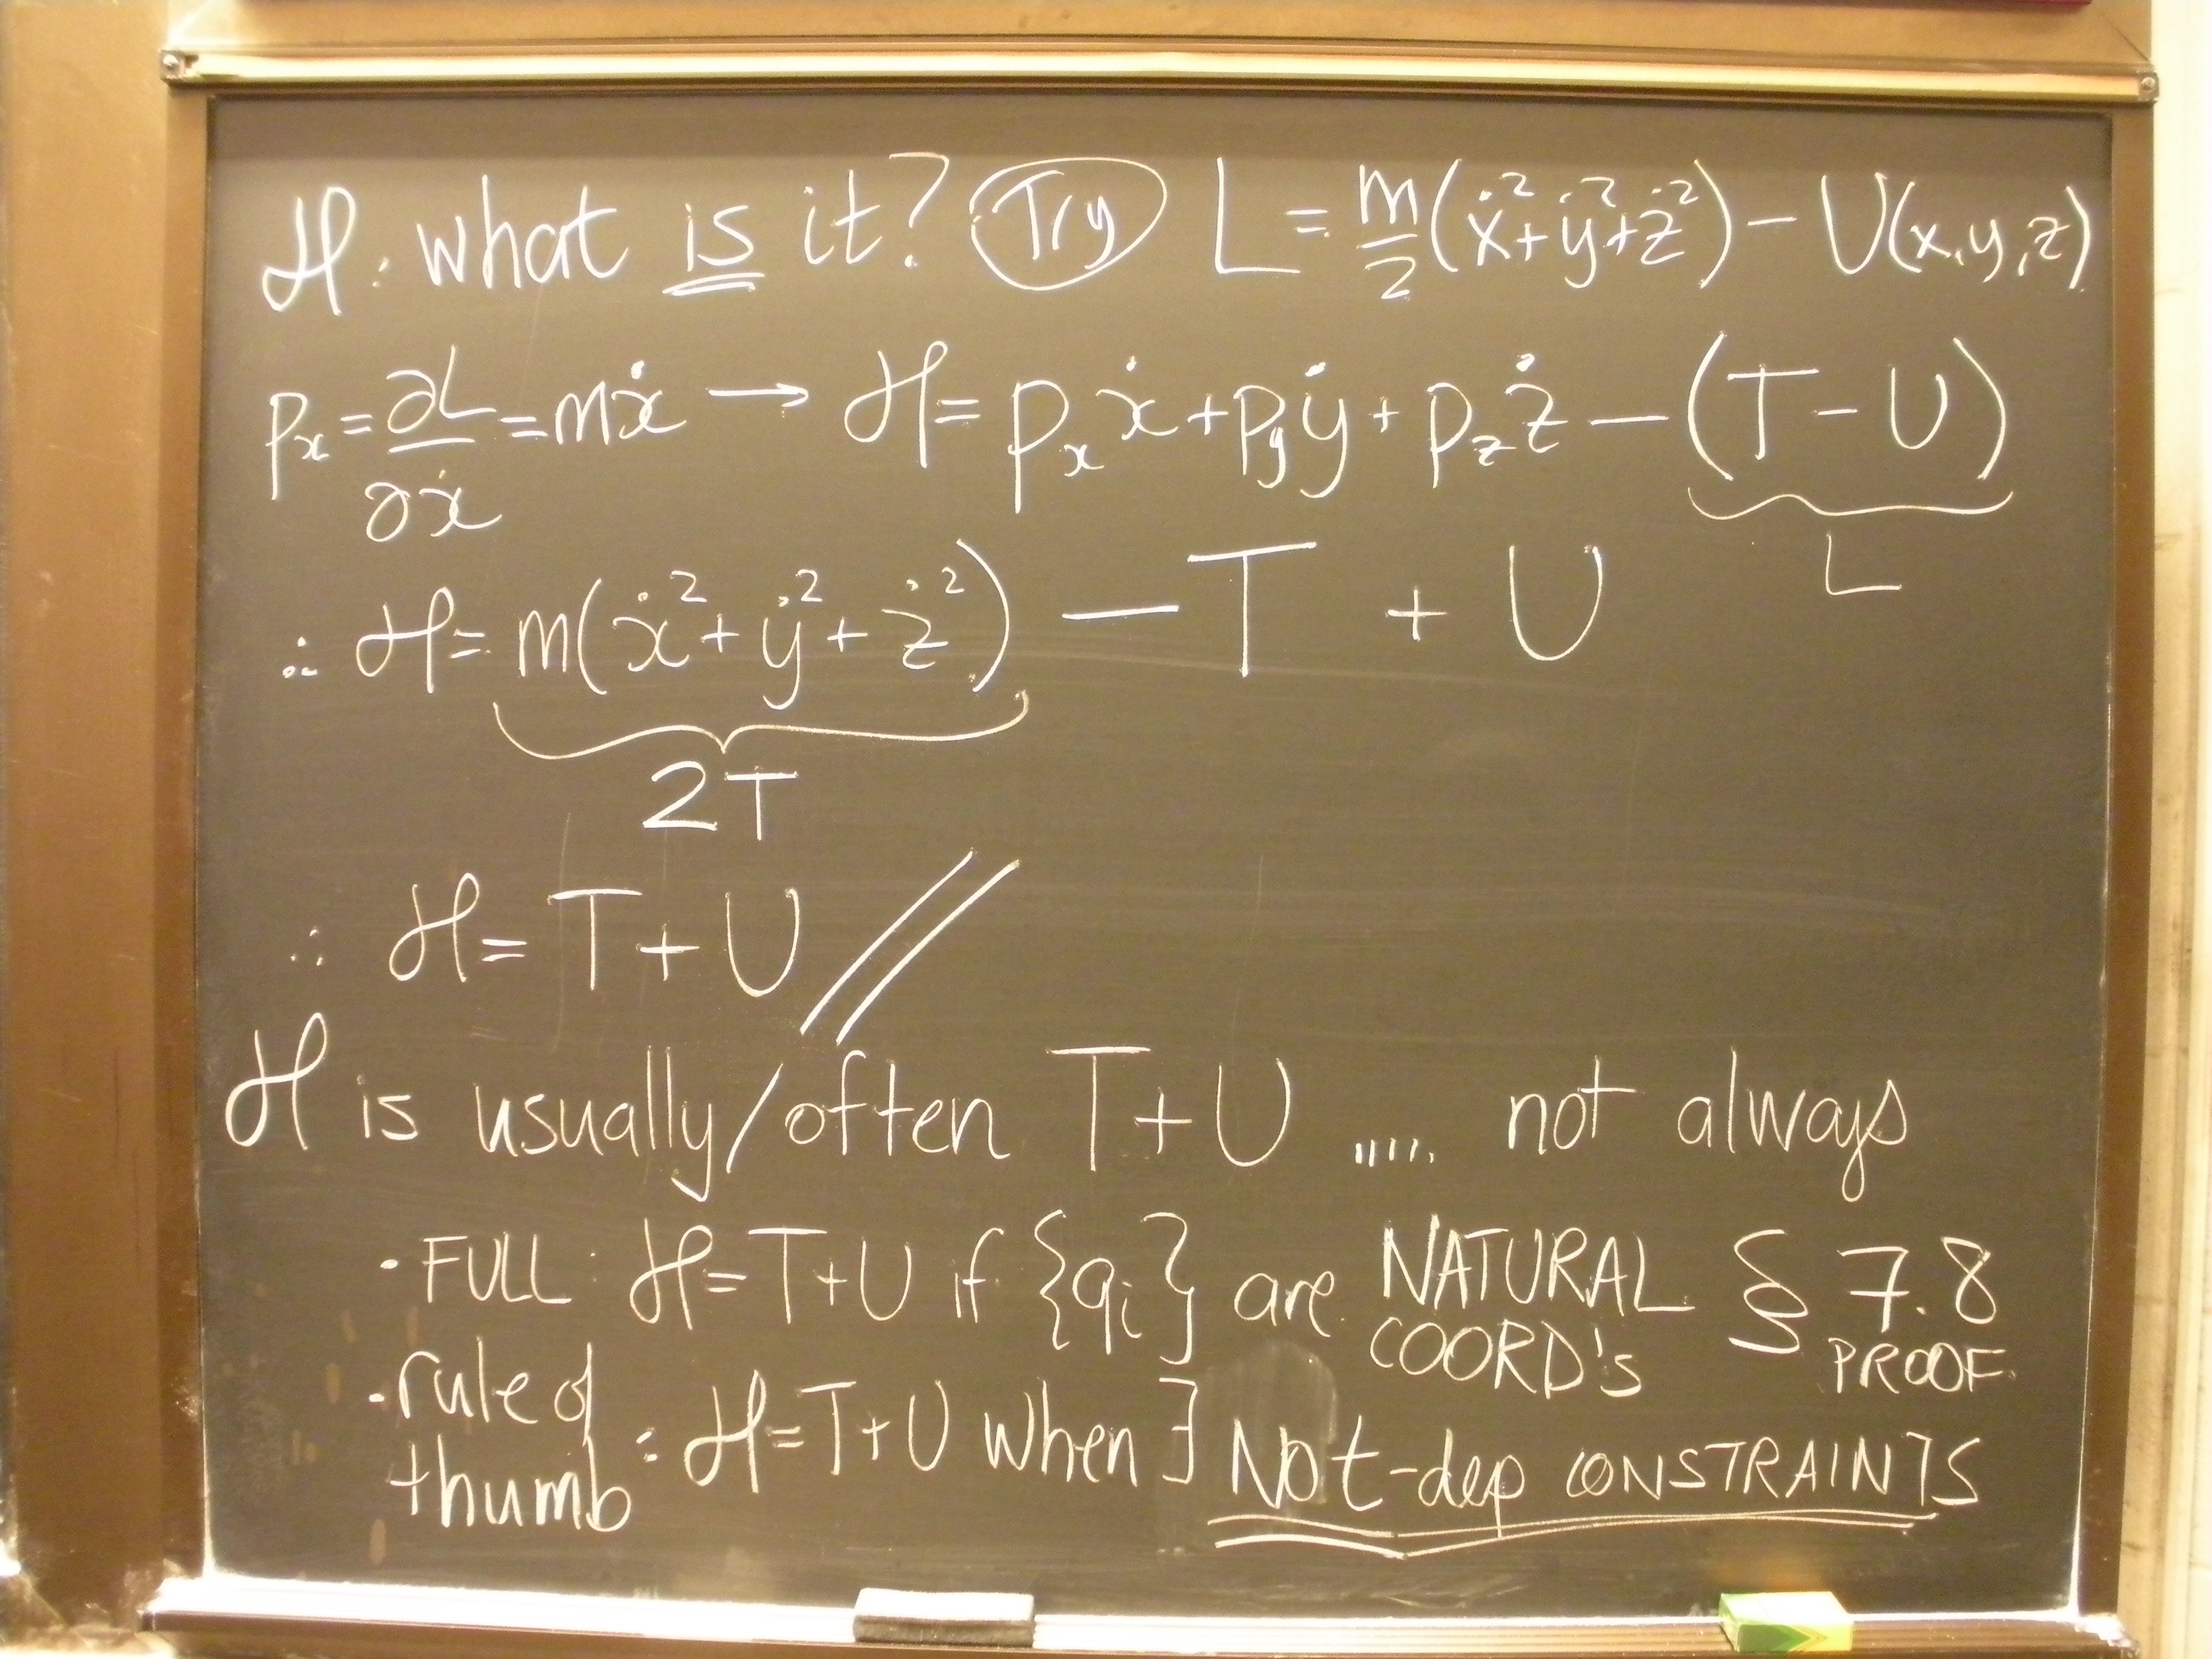 ℋ: what is it? Try L = m/2 (ẋ² + ẏ² + ż²) − U(x,y,z)
pₓ = ∂L/∂ẋ = mẋ → ℋ = pₓẋ + p_yẏ + p_zż − (T − U)
L
∴ ℋ = m(ẋ² + ẏ² + ż²) − T + U
2T
∴ ℋ = T + U //
ℋ is usually/often T + U ..... not always
· FULL: ℋ = T+U if {qᵢ} are NATURAL COORD's § 7.8 PROOF
· rule of thumb: ℋ = T+U when ∃ NO t-dep CONSTRAINTS